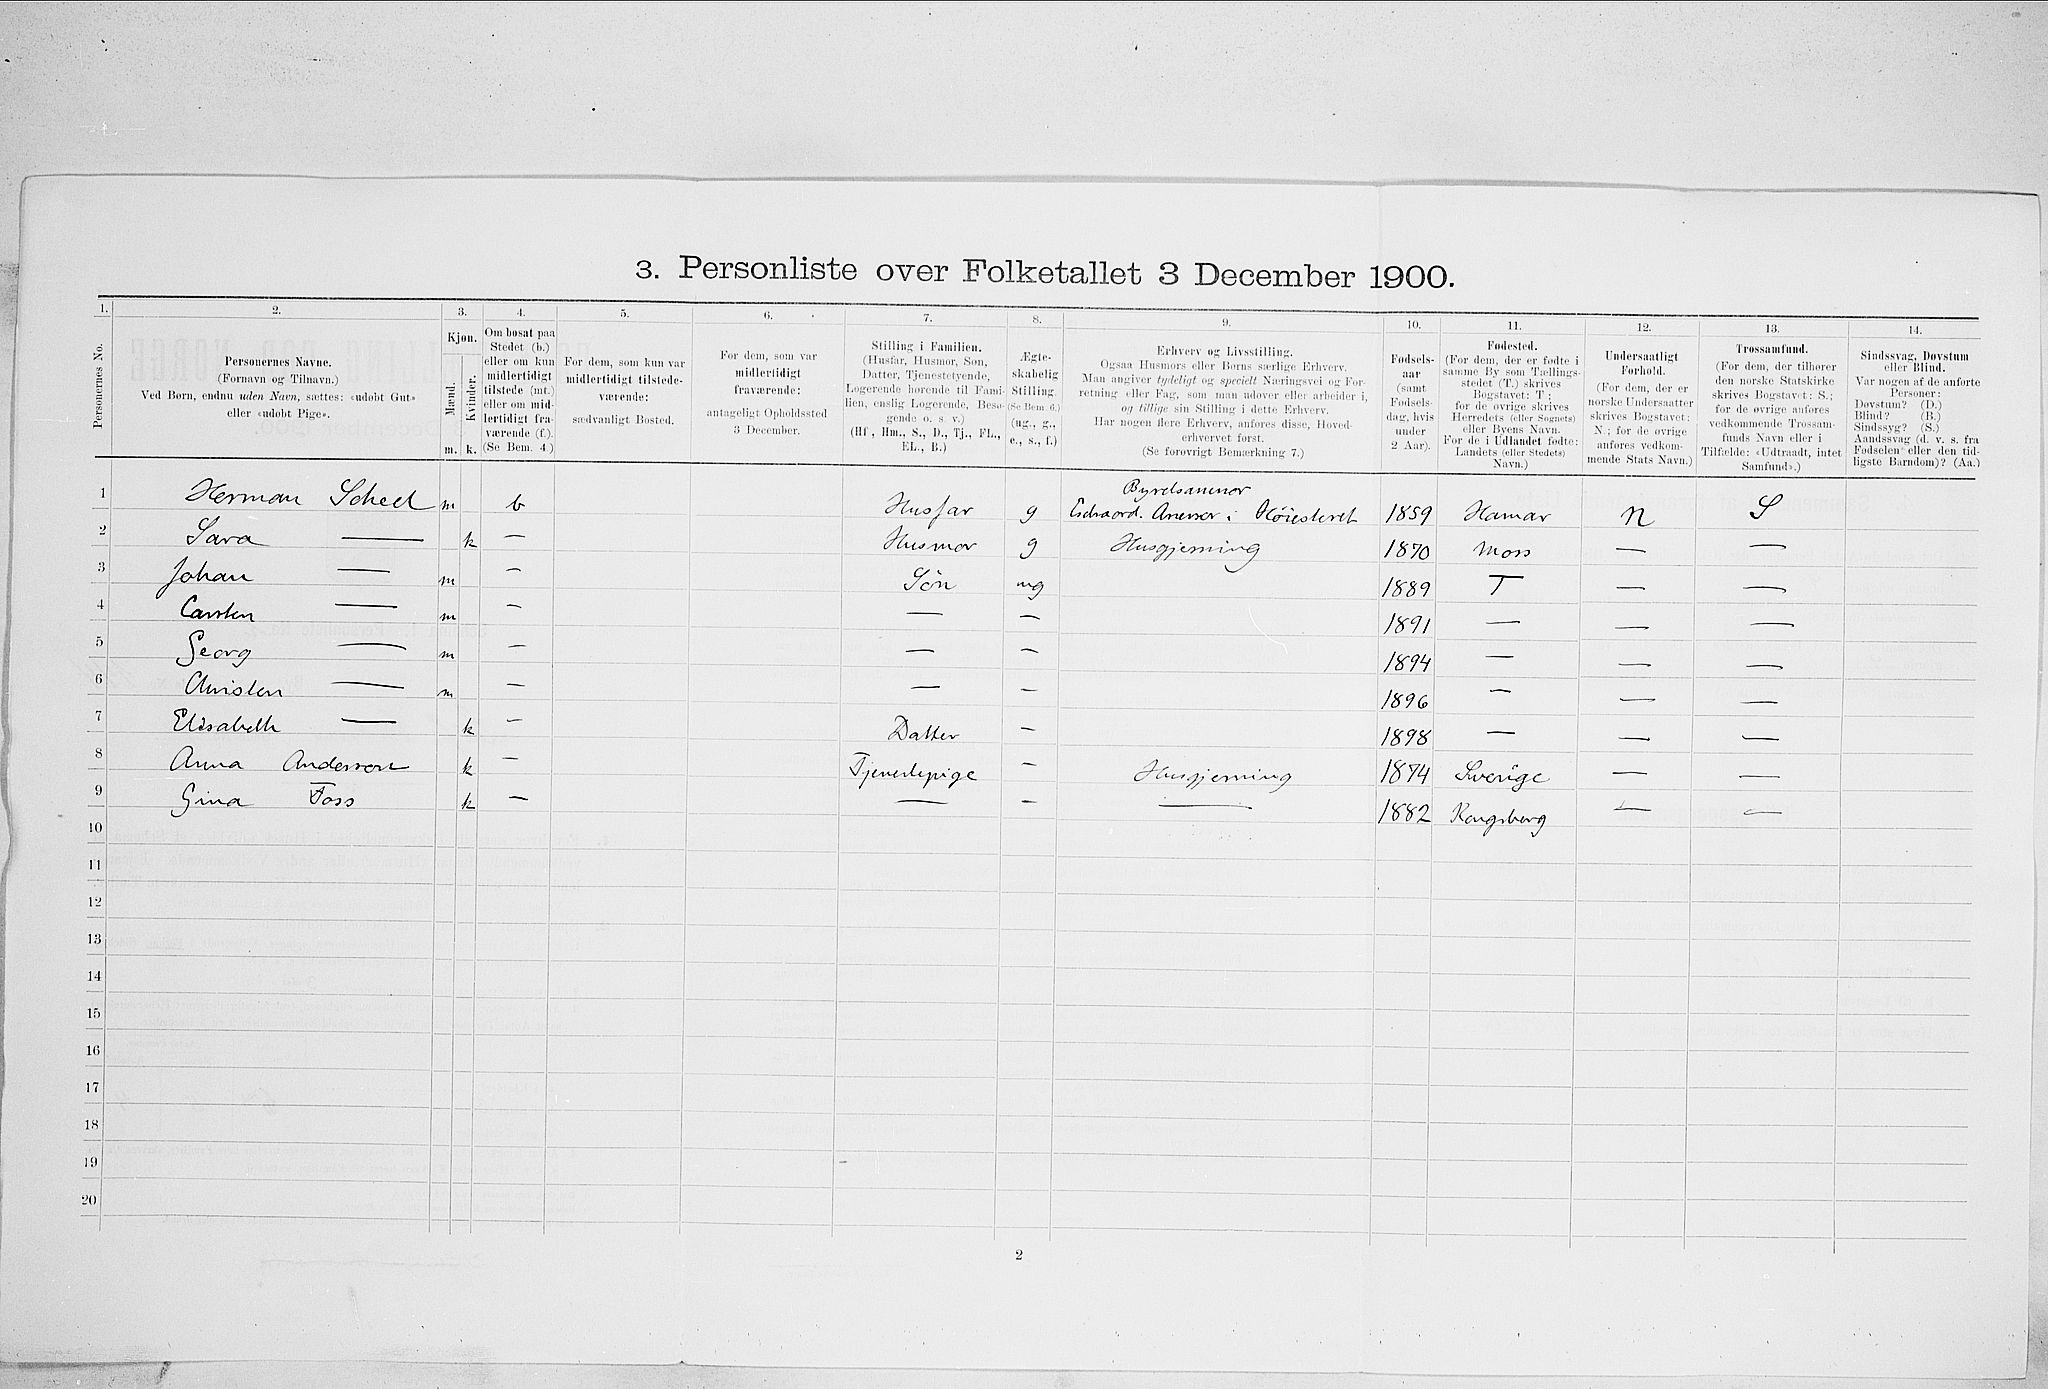 3. Personliste over Folketallet 3 December 1900.
1. 2. 3. 4. 5. 6. 7. 8. 9. 10. 11. 12. 13. 14.
Personernes No.
Personernes Navne.
(Fornavn og Tilnavn.)
Ved Børn, endnu uden Navn, sættes: «udøbt Gut»
eller «udøbt Pige».
Kjøn.
Mænd.
Kvinder.
m. k.
Om bosat paa
Stedet (b.)
eller om kun
midlertidigt
tilstede (mt.)
eller om mid-
lertidigt fra-
værende (f.).
(Se Bem. 4.)
For dem, som kun var
midlertidigt tilstede-
værende:
sædvanligt Bosted.
For dem, som var
midlertidigt
fraværende:
antageligt Opholdssted
3 December.
Stilling i Familien.
(Husfar, Husmor, Søn,
Datter, Tjenestetyende,
Logerende hørende til Fami-
lien, enslig Logerende, Besø-
gende o. s. v.)
(Hf., Hm., S., D., Tj., FL.,
EL., B.)
Ægte-
skabelig
Stilling.
(Se Bem. 6.)
(ug., g.,
e., s., f.)
Erhverv og Livsstilling.
Ogsaa Husmors eller Børns særlige Erhverv.
Man angiver tydeligt og specielt Næringsvei og For-
retning eller Fag, som man udøver eller arbeider i,
og tillige sin Stilling i dette Erhverv.
Har nogen flere Erhverv, anføres disse, Hoved-
erhvervet først.
(Se forøvrigt Bemærkning 7.)
Fødsels-
aar
(samt
Fødsels-
dag, hvis
under
2 Aar).
Fødested.
(For dem, der er fødte i
samme By som Tællings-
stedet (T.) skrives
Bogstavet: T;
for de øvrige skrives
Herredets (eller Sognets)
eller Byens Navn.
For de i Udlandet fødte:
Landets (eller Stedets)
Navn.)
Undersaatligt
Forhold.
(For dem, der er
norske Undersaatter
skrives Bogstavet:
N.; for de øvrige
anføres vedkom-
mende Stats Navn.)
Trossamfund.
(For dem, der tilhører
den norske Statskirke
skrives Bogstavet: S.;
for de øvrige anføres
vedkommende Trossam-
funds Navn eller i
Tilfælde: «Udtraadt, intet
Samfund».)
Sindssvag, Døvstum
eller Blind.
Var nogen af de anførte
Personer:
Døvstum? (D.)
Blind? (B.)
Sindssyg? (S.)
Aandssvag (d. v. s. fra
Fødselen eller den tid-
ligste Barndom)? (Aa.)
1 Herman Scheel m b Husfar g Byretsdommer
Extraord. Assessor i Høiesteret 1859 Hamar N S
2 Sara — k — Husmor g Husgjerning 1870 Moss — —
3 Johan — m — Søn ug 1889 T — —
4 Carsten — m — — — 1891 — — —
5 Georg — m — — — 1894 — — —
6 Christen — m — — — 1896 — — —
7 Elisabeth — k — Datter — 1898 — — —
8 Anna Anderson k — Tjenestepige — Husgjerning 1874 Sverige — —
9 Gina Foss k — — — — 1882 Kongsberg — —
10
11
12
13
14
15
16
17
18
19
20
2